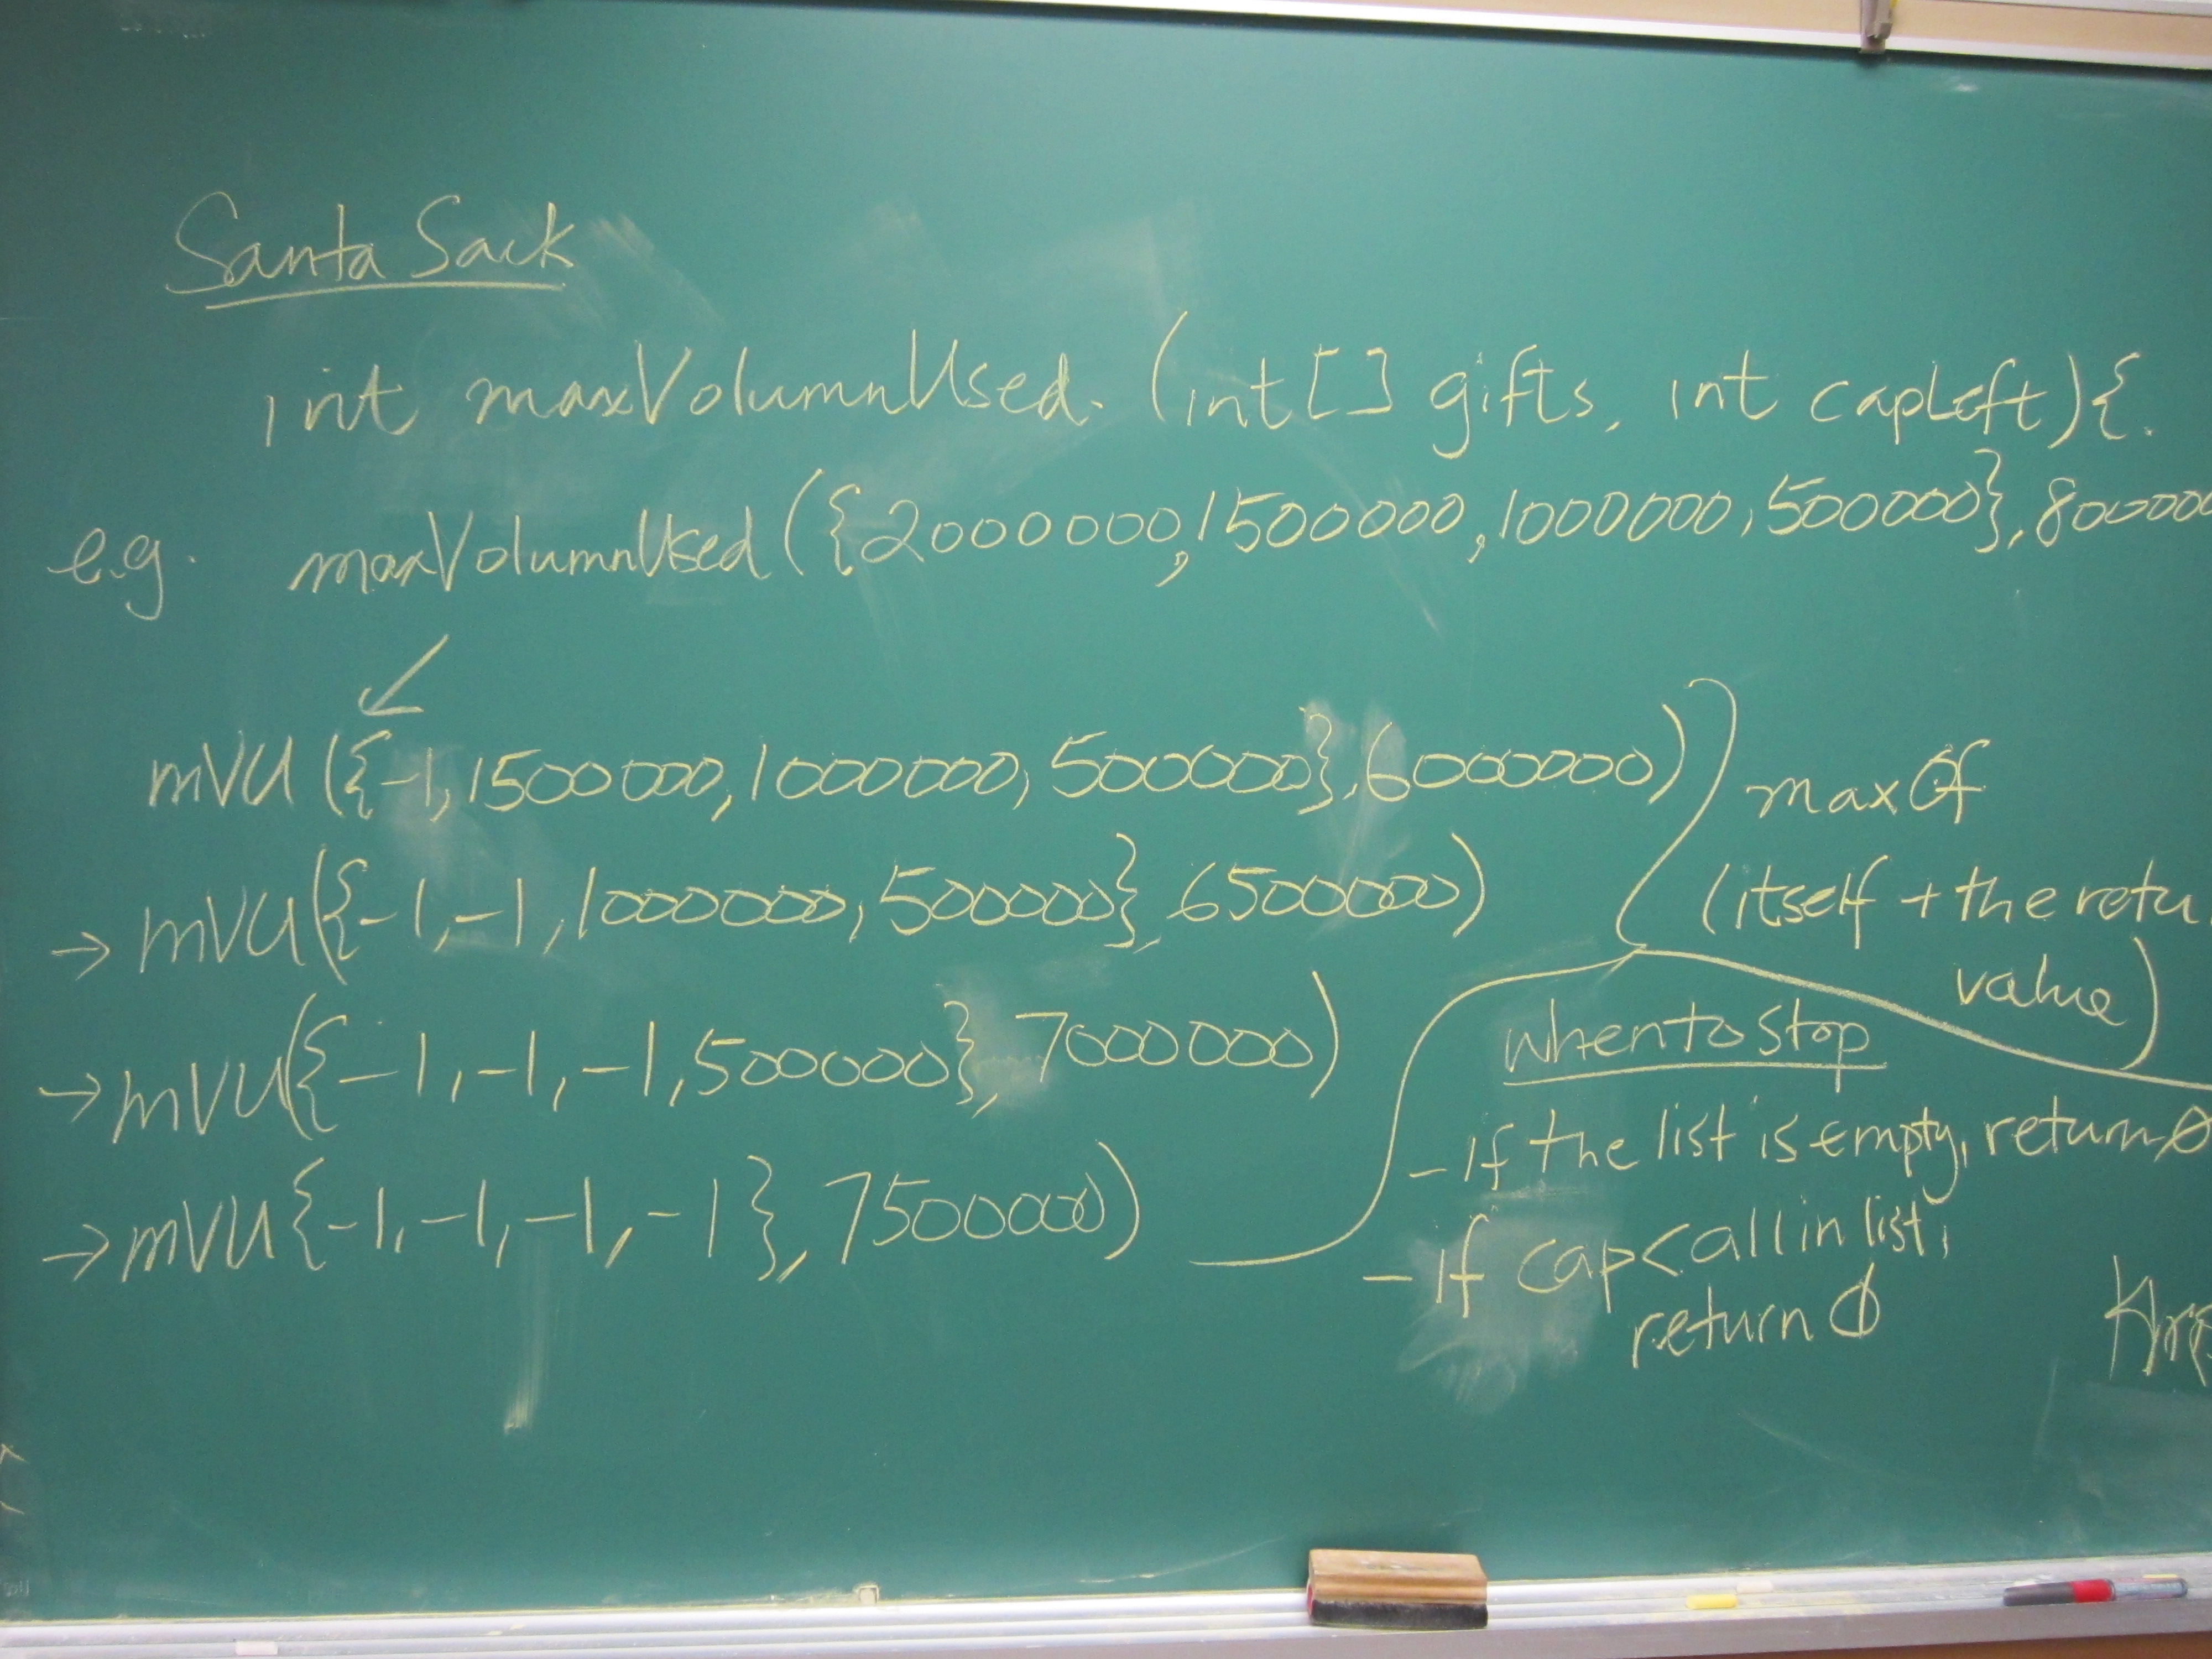 Santa Sack
int maxVolumnUsed. (int[] gifts, int capLeft){.
e.g. maxVolumnUsed({2000000,1500000,1000000,500000},800000
mVU({-1,1500000,1000000,500000},6000000)
→mVU({-1,-1,1000000,500000},6500000)
→mVU({-1,-1,-1,500000},7000000)
→mVU{-1,-1,-1,-1},7500000)
max Of
(itself + the retu
value)
when to stop
- If the list is empty, return 0
- If cap < all in list,
return 0